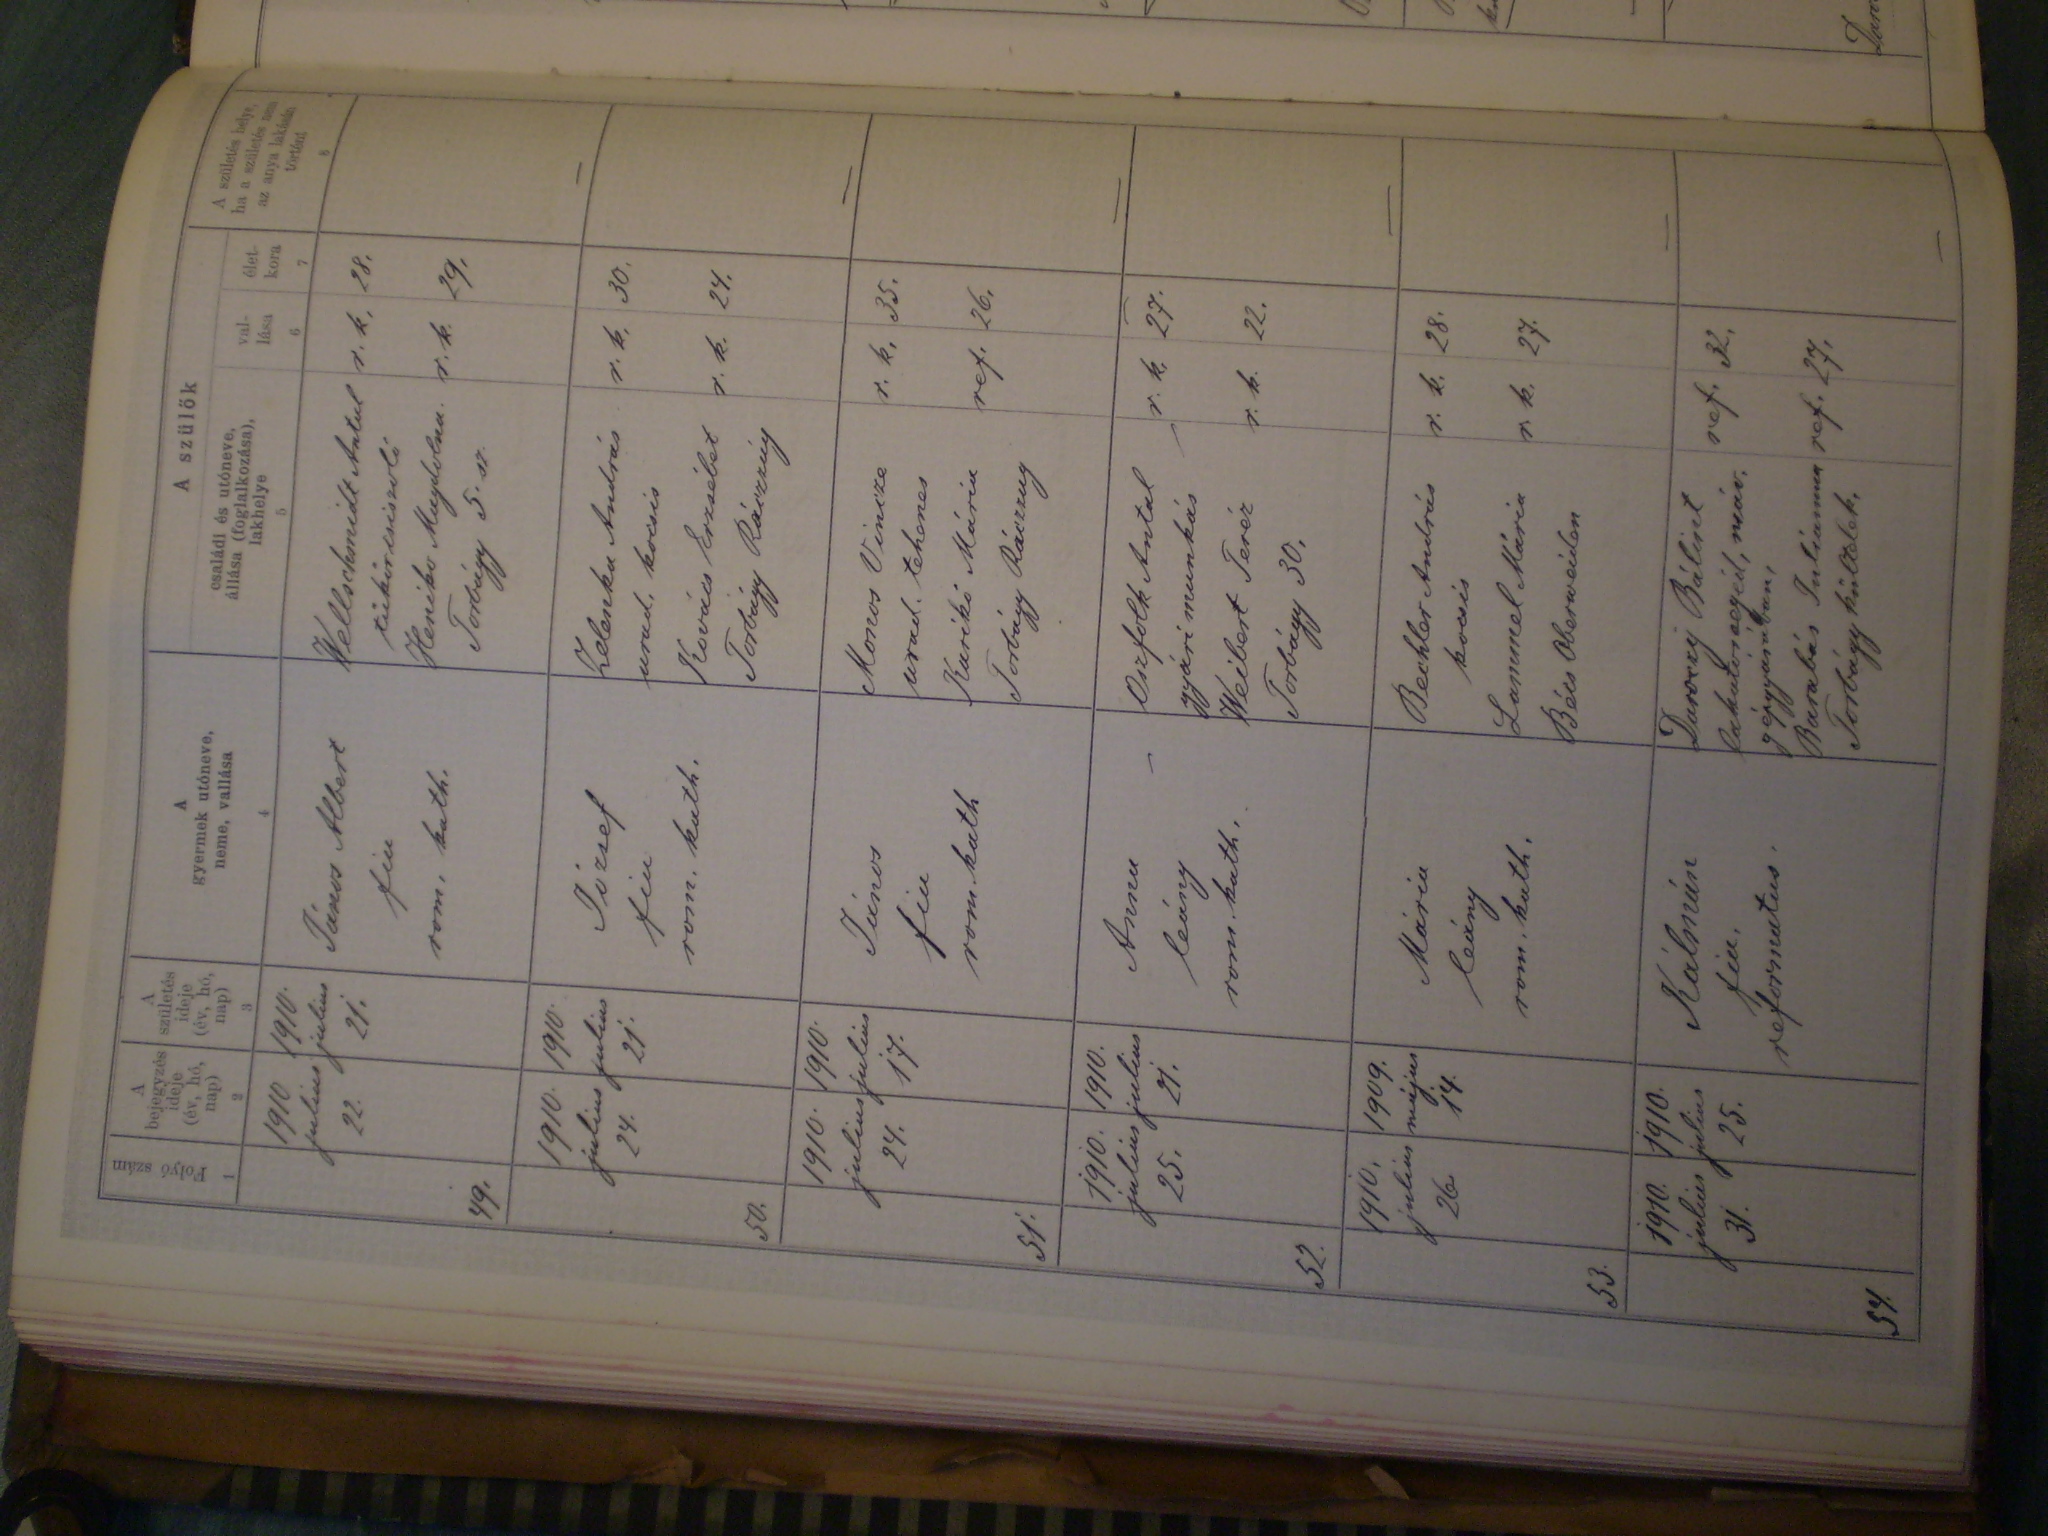 Folyó szám
A bejegyzés ideje (év, hó, nap)
A születés ideje (év, hó, nap)
A gyermek utóneve, neme, vallása
A szülők
családi és utóneve, állása (foglalkozása), lakhelye
vallása
életkora
A születés helye, ha a születés nem az anya lakásán történt
1
2
3
4
5
6
7
8
49.
1910
julius
22.
1910.
julius
21.
János Albert
fiu
rom. kath.
Wellschmidt Antal r. k. 28.
tükörcsiszoló
Henike Magdolna. r. k. 29.
Torbágy 5. sz.
50.
1910.
julius
24.
1910.
julius
21.
József
fiu
rom. kath.
Zelenka András r. k. 30.
urad. kocsis
Kovács Erzsébet r. k. 24.
Torbágy Ráczzúg
—
51.
1910.
julius
24.
1910.
julius
17.
János
fiu
rom. kath
Monos Vincze r. k. 35.
urad. tehenes
Kurikó Mária ref. 26.
Torbágy Ráczzug
—
52.
1910.
julius
25.
1910.
julius
21.
Anna
leány
rom. kath.
Oszfolk Antal r. k. 27.
gyári munkás
Weibert Teréz r. k. 22.
Torbágy 30.
—
53.
1910.
julius
26
1909.
május
14.
Mária
leány
rom. kath.
Bechler András r. k. 28.
kocsis
Lammel Mária r. k. 27.
Bécs Oberweiden
—
54.
1910.
julius
31.
1910.
julius
25.
Kálmán
fiu.
reformatus.
Daroczi Bálint ref. 32.
lakatossegéd, máv.
gépgyárában,
Barabás Juliánna ref. 27.
Torbágy kültelek.
—